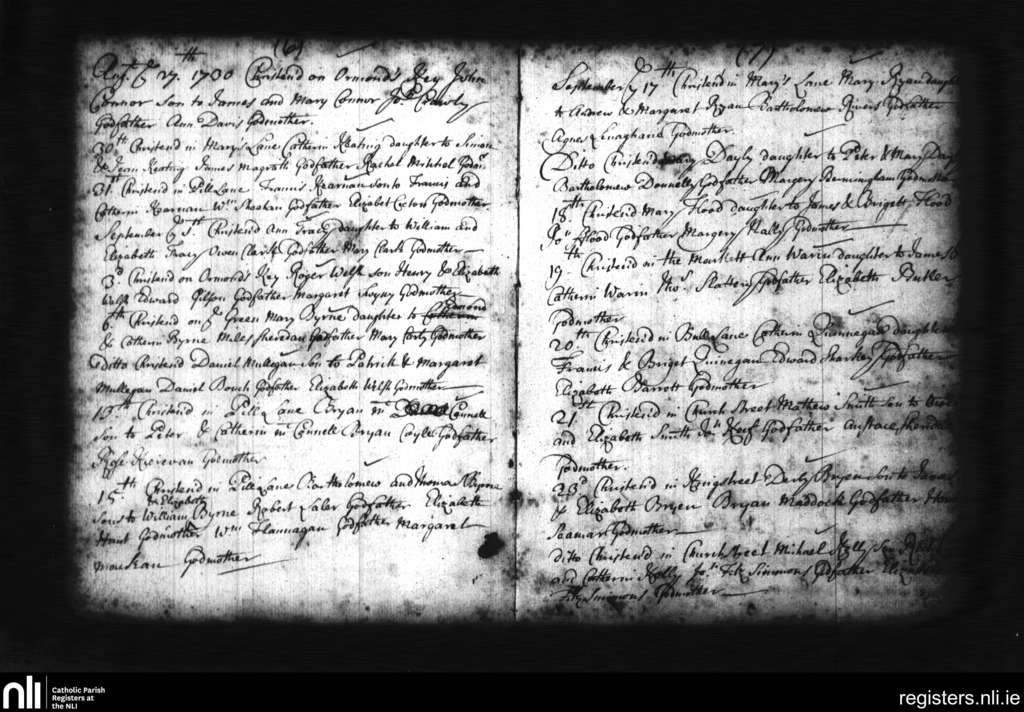 (6)
Augt ye 27th 1730 Christend on Ormond's Key John
Connor Son to James and Mary Connor Jon Connoly
Godfather Ann Davis Godmother.
30th Christend in Mary's Lane Cathern Keating daughter to Simon
& Jean Keating James Magrath Godfather Rachel Mitchel Godmr
31. Christend in Pill Lane Francis Kearnan Son to Francis and
Cathern Kearnan Wm Godfather Elizabet Godmother
September ye 1st. Christend Ann Tracy daughter to William and
Elizabeth Tracy Owen Clark Godfather Mary Clark Godmother
3d Christend on Ormonds Key Roger Welsh Son Henry & Elizabeth
Welsh Edward Godfather Margaret Godmother
6th Christend on ye Green Mary Byrne daughter to Edmond
& Cathern Byrne Miles Sheredan Godfather Mary Godmother
ditto Christend Daniel Mullegan Son to Patrick & Margaret
Mullegan Daniel Godfather Elizabeth Welsh Godmother
13th Christend in Pill Lane Bryan mc Connell
Son to Peter & Cathern mc Connell Bryan Coyle Godfather
Rose Godmother
15th Christend in Pill Lane Bartholomew and Thomas Byrne
Sons to William & Elizabeth Byrne Robert Laler Godfather Elizabeth
Hunt Godmother Wm Flannagan Godfather Margaret
Godmother
(7)
September ye 17th Christend in Mary's Lane Mary Ryan daughter
to Andrew & Margaret Ryan Bartholomew Rivers Godfather
Agnes Godmother.
Ditto Christend Mary Dayly daughter to Peter & Mary
Bartholomew Donnelly Godfather Margery Bermingham Godmother
18th Christend Mary Flood daughter to James & Briget Flood
Jon Flood Godfather Margery Godmother
19th Christend in the Markett Ann Warin daughter to James &
Cathern Warin Thos. Slattery Godfather Elizabeth Butler
Godmother
20th Christend in Bull Lane Cathern daughter
Francis & Briget Edward Sharkey Godfather
Elizabeth Barrott Godmother
21st Christend in Church Street Mathew Smith Son to
and Elizabeth Smith Jon Keef Godfather
Godmother.
23d Christend in Kingstreet Derby Bryen Son to James
& Elizabeth Bryen Bryan Maddock Godfather
Seaman Godmother
ditto Christend in Church Street Michael Kelly Son
and Cathern Kelly Jon Fitz Simmons Godfather
Fitz Simmons Godmother
nli
Catholic Parish
Registers at
the NLI
registers.nli.ie